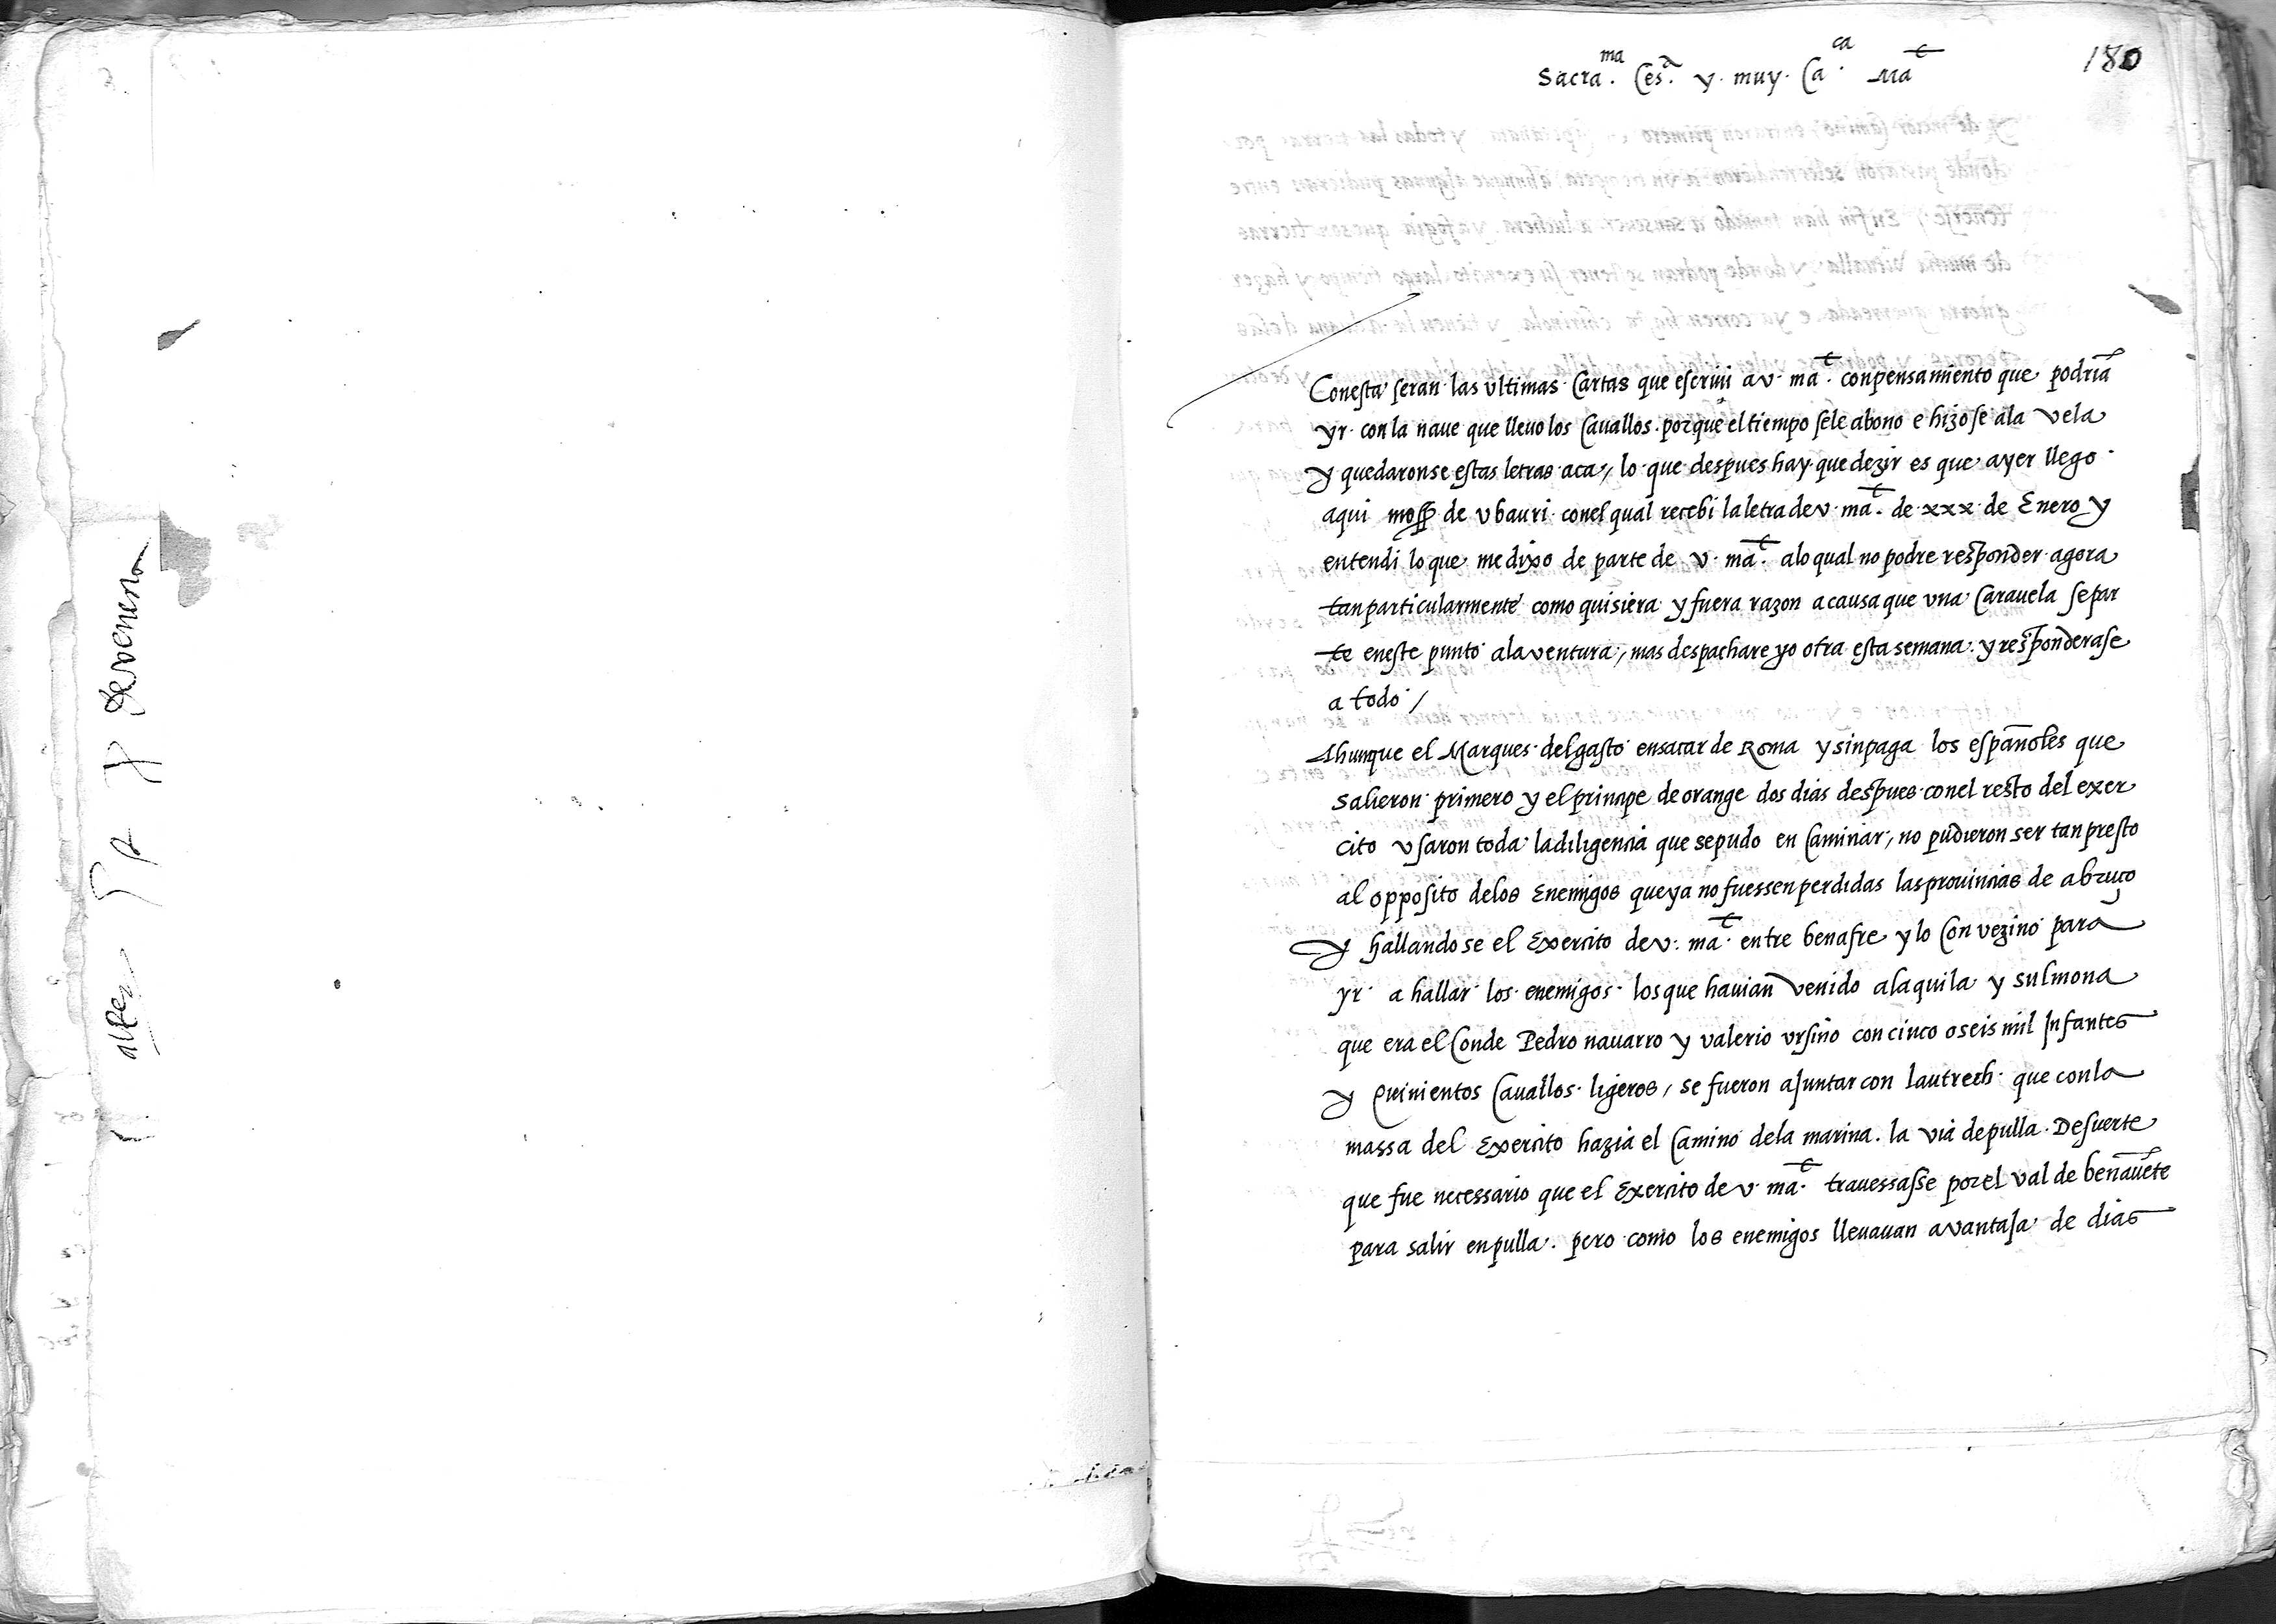 180
Sacra.ma Ces.a y. muy. Ca.ca Ma.t
Conesta seran las vltimas Cartas que escriui a v. ma.t con pensamiento que podria
yr con la naue que lleuo los Cauallos. porque el tiempo se le abono e hizose ala vela
y quedaronse estas letras aca, lo que despues hay que dezir es que ayer llego
aqui de vbauri conel qual recebi la letra de v. ma.t de xxx de Enero y
entendi lo que me dixo de parte de v. ma.t alo qual no podre responder agora
tan particularmente como quisiera y fuera razon a causa que vna Carauela se par
te eneste punto ala ventura, mas despachare yo otra esta semana. y responderase
a todo /
Ahunque el Marques del gasto en sacar de Roma y sin paga los españoles que
salieron primero y el principe de orange dos dias despues conel resto del exer
cito vsaron toda la diligencia que se pudo en Caminar, no pudieron ser tan presto
al opposito delos Enemigos que ya no fuessen perdidas las prouincias de abruço
y hallandose el Exercito de v. ma.t entre benafre y lo Convezino para
yr a hallar los enemigos los que hauian venido al aquila y sulmona
que era el Conde Pedro nauarro y valerio vrsino con cinco o seis mil Infantes
y Quinientos Cauallos ligeros, se fueron ajuntar con lautrech que conla
massa del Exercito hazia el Camino dela marina. la via de pulla. De suerte
que fue necessario que el Exercito de v. ma.t trauessasse por el val de benauēte
para salir en pulla. pero como los enemigos lleuauan avantaja de dias